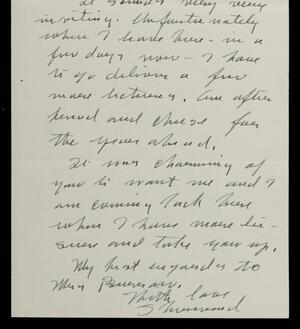 It sounds very very
inviting. Unfortunately
when I leave here - in a
few days now - I have
to go deliver a few
more lectures. Am after
period and cheese for
the years ahead.
It was charming of
you to want me and I
am coming back here
when I have more lei-
sure and take you up.
My best regards to
Mrs
With love